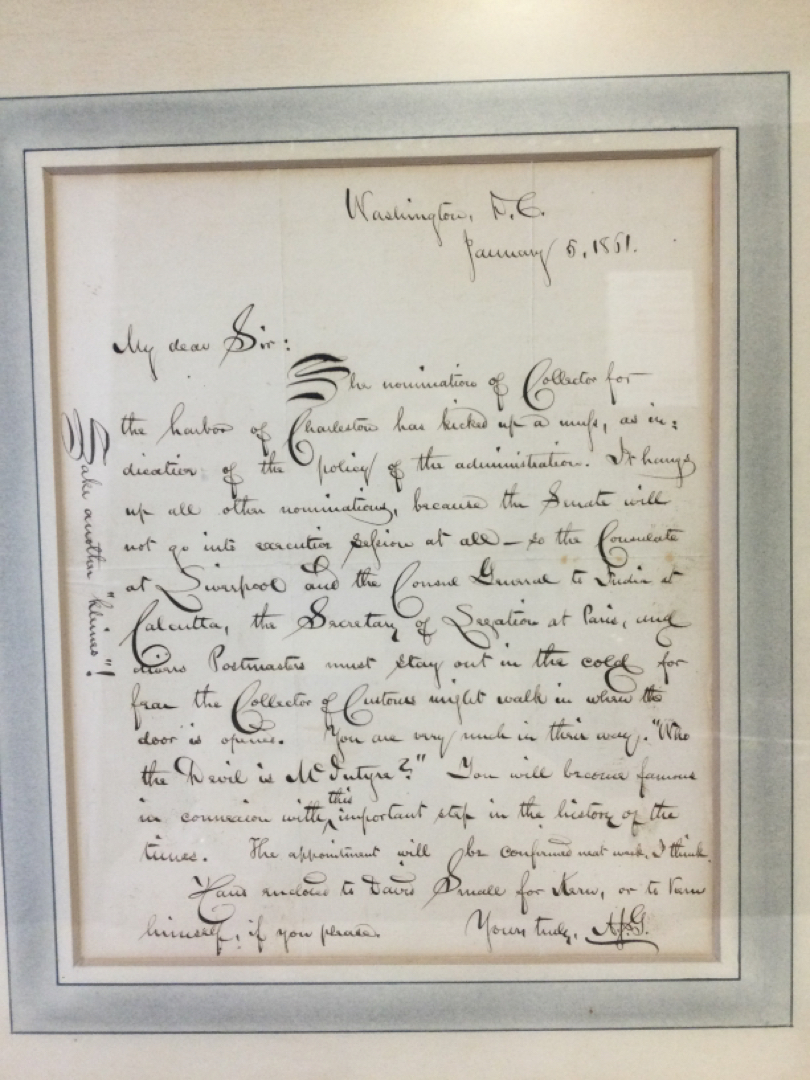 Washington, D.C.
January 5, 1861.
My dear Sir:
The nomination of Collector for
the harbor of Charleston has kicked up a muss, as in=
dication of the policy of the administration. It hangs
up all other nominations, because the Senate will
not go into executive session at all — so the Consulate
at Liverpool and the Consul General to India at
Calcutta, the Secretary of Legation at Paris, and
divers Postmasters must stay out in the cold for
fear the Collector of Customs might walk in when the
door is opened. You are very much in their way. "Who
the Devil is McIntyre?" You will become famous
in connexion with this important step in the history of the
times. The appointment will be confirmed next week, I think.
Have enclosed to David Small for Kern, or to Kern
himself, if you please. Yours truly, A.J.G.
Take another "kleines"!